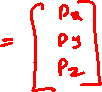 Px
= Py
Pz